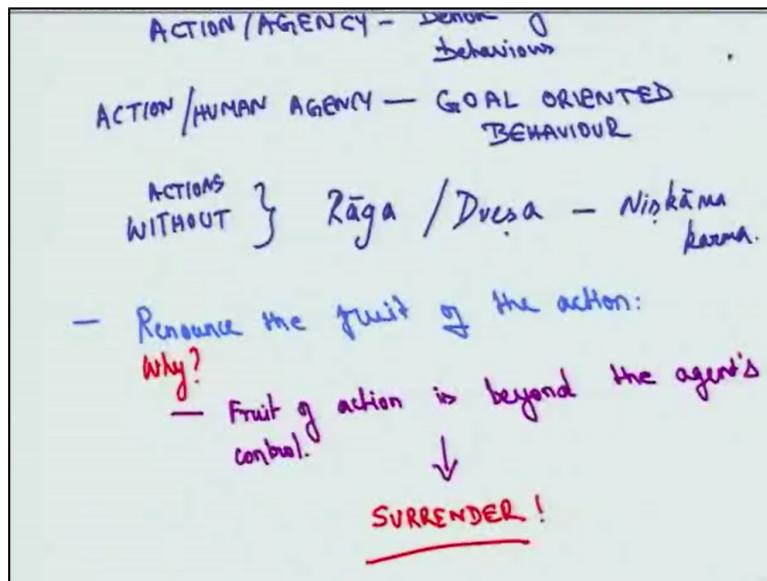 ACTION/AGENCY - of
behaviours
ACTION/HUMAN AGENCY — GOAL ORIENTED
BEHAVIOUR
ACTIONS
WITHOUT } Rāga / Dveṣa — Niṣkāma
karma.
— Renounce the fruit of the action:
Why?
— Fruit of action is beyond the agent's
control.
↓
SURRENDER!